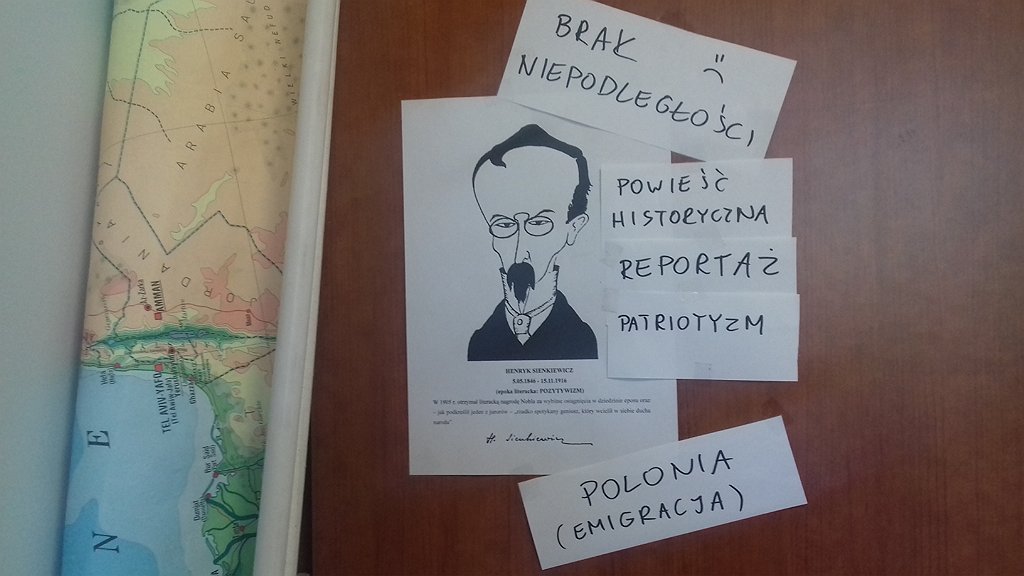 BRAK
NIEPODLEGŁOŚCI
POWIEŚĆ
HISTORYCZNA
REPORTAŻ
PATRIOTYZM
HENRYK SIENKIEWICZ
5.05.1846 - 15.11.1916
(epoka literacka: POZYTYWIZM)
W 1905 r. otrzymał literacką nagrodę Nobla za wybitne osiągnięcia w dziedzinie eposu oraz
– jak podkreślił jeden z jurorów – „rzadko spotykany geniusz, który wcielił w siebie ducha
narodu”
H. Sienkiewicz
POLONIA
(EMIGRACJA)
ARABIA
AMMAN
TEL AVIV-YAFO
N E